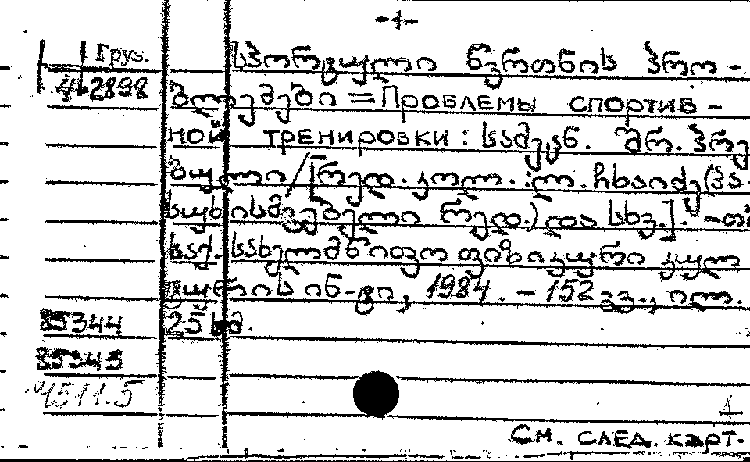 -1-
Груз. სპორტული წვრთნის პრო-
4-2898 ბლემები = Проблемы спортив-
ной тренировки: სამეცნ. შრ. კრე
ბული / [რედ. კოლ.: ლ. ჩხაიძე (პა-
სუხისმგებელი რედ.) და სხვ.]. - თბ
საქ. სახელმწიფო ფიზიკური კულ
ტურის ინ-ტი, 1984. - 152 გვ., ილ.
85344 25 სმ.
85345
4511.5
1
См. след. карт.